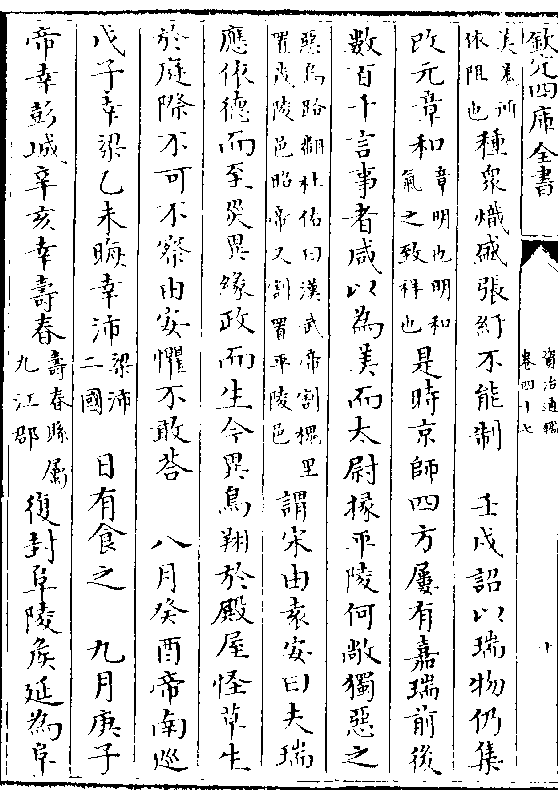 欽定四庫全書
資治通鑑
卷四十七
十
美農所
依阻也種衆熾盛張紆不能制　壬戌詔以瑞物仍集
改元章和章明也明和
氣之致祥也是時京師四方屢有嘉瑞前後
數百千言事者咸以為美而太尉掾平陵何敞獨惡之
惡烏路翻杜佑曰漢武帝割槐里
置茂陵邑昭帝又割置平陵邑謂宋由袁安曰夫瑞
應依德而至災異緣政而生今異鳥翔於殿屋怪草生
於庭際不可不察由安懼不敢荅　八月癸酉帝南巡
戊子幸梁乙未晦幸沛梁沛
二國　日有食之　九月庚子
帝幸彭城辛亥幸壽春壽春縣屬
九江郡復封阜陵侯延為阜